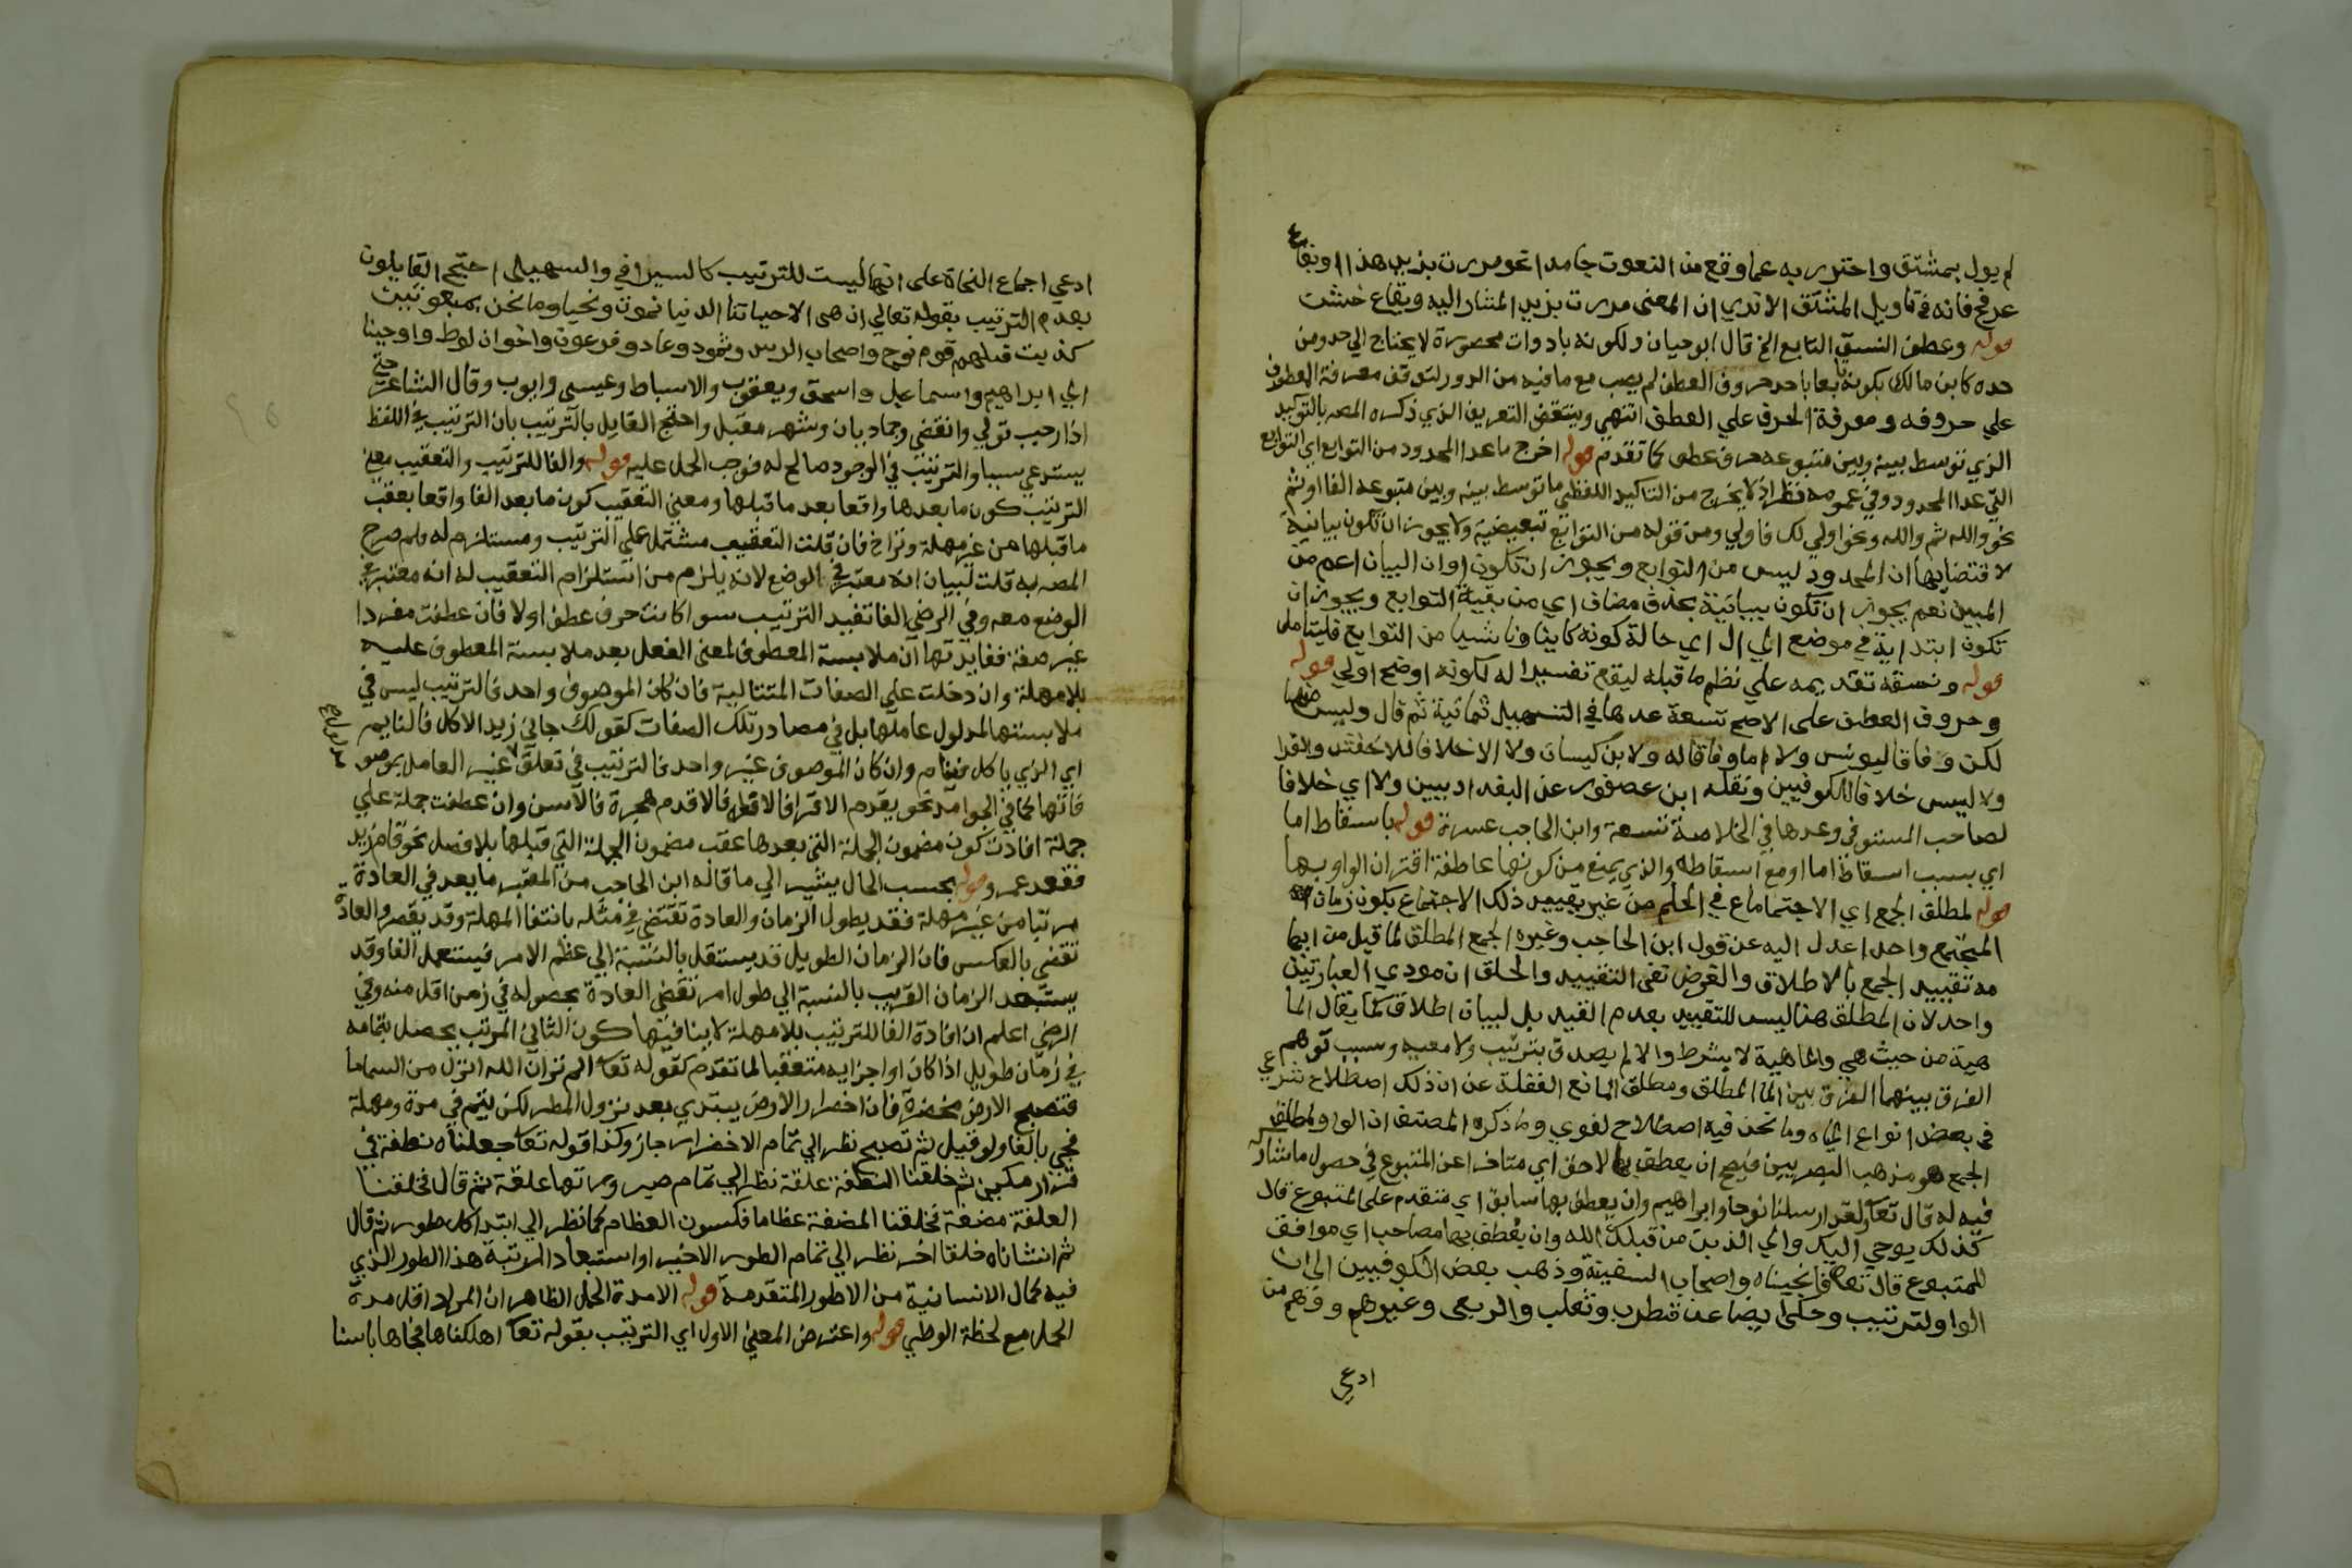 لم يول بمشتق واحترز به عما وقع من النعوت جامدا نحو مررت بزيد هذا او بقاع
عرفج فانه في تاويل المشتق الا تري ان المعني مررت بزيد المشار اليه وبقاع خشنت
قوله وعطف النسق التابع الخ قال ابو حيان ولكونه بادوات محصورة لا يحتاج الي حد ومن
حده كابن مالك بكونه تابعا باحد حروف العطف لم يصب مع ما فيه من الدور لتوقف معرفة المعطوف
علي حروفه ومعرفة الحرف علي العطف انتهي وينتقض التعريف الذي ذكره المصه بالتوكيد
الذي توسط بينه وبين متبوعه حرف عطف كما تقدم قوله اخرج ما عدا المحدود من التوابع اي التوابع
التي عدا المحدود وفي عمومه نظر اذ لا يخرج من التاكيد اللفظي ما توسط بينه وبين متبوعه الفا او ثم
نحو والله ثم والله ونحو اولي لك فاولي ومن قوله من التوابع تبعيضية ولا يجوز ان تكون بيانية
لاقتضايها ان المحدود ليس من التوابع ويجوز ان تكون وان البيان اعم من
المبين نعم يجوز ان تكون بيانية بحذف مضاف اي من بقية التوابع ويجوز ان
تكون ابتدايية في موضع الحال اي حالة كونه كاينا وناشيا من التوابع فليتامل
قوله ونسقه تقديمه علي نظم ما قبله ليقع تفسيرا له لكونه اوضح اولي قوله
وحروف العطف علي الاصح تسعة عدها في التسهيل ثمانية ثم قال وليس منها
لكن وفاقا ليونس ولا اما وفاقا له ولابن كيسان ولا الا خلافا للاخفش والفرا
ولا ليس خلافا للكوفيين ونقله ابن عصفور عن البغداديين ولا اي خلافا
لصاحب المستوفي وعدها في الخلاصة تسعة وابن الحاجب عشرة قوله باسقاط اما
اي بسبب اسقاط اما او مع اسقاطه والذي يمنع من كونها عاطفة اقتران الواو بها
قوله لمطلق الجمع اي الاجتماع في الحكم من غير تقييد ذلك الاجتماع بكون زمان
المجتمع واحدا عدل اليه عن قول ابن الحاجب وغيره الجمع المطلق لما قيل من ايها
مه تقييد الجمع بالاطلاق والغرض نفي التقييد والحلق ان مودي العبارتين
واحد لان المطلق هنا ليس للتقييد بعدم القيد بل لبيان اطلاق كما يقال الما
هية من حيث هي والماهية لا بشرط والا لم يصدق بترتيب ولا معية وسبب توهم
الفرق بينهما الفرق بين الما المطلق ومطلق الما مع الغفلة عن ان ذلك اصطلاح شرعي
في بعض انواع المياه وما نحن فيه اصطلاح لغوي وما ذكره المصنف ان الواو لمطلق
الجمع هو مذهب البصريين فيصح ان يعطف بها لاحق اي متاخر عن المتبوع في حصول ما شارك
فيه له قال تعا ولقد ارسلنا نوحا وابراهيم وان يعطف بها سابق اي متقدم علي المتبوع قال
كذلك يوحي اليك والي الذين من قبلك الله وان يعطف بها مصاحب اي موافق
للمتبوع قال تعا فانجيناه واصحاب السفينة وذهب بعض الكوفيين الي ان
الواو لترتيب وحكي ايضا عن قطرب وثعلب والربعي وغيرهم ووهم من
ادعي
ادعي اجماع النحاة علي انها ليست للترتيب كالسيرافي والسهيلي احتج القايلون
بعدم الترتيب بقوله تعالي ان هي الا حياتنا الدنيا نموت ونحيا وما نحن بمبعوثين
كذبت قبلهم قوم نوح واصحاب الرس وثمود وعاد وفرعون واخوان لوط واوحينا
الي ابراهيم واسماعيل واسحق ويعقوب والاسباط وعيسي وايوب وقال الشاعر حتي
اذا رجب تولي وانقضي وجماديان وشهر مقبل واحتج القايل بالترتيب بان الترتيب في اللفظ
يستدعي سببا والترتيب في الوجود صالح له فوجب الحمل عليه قوله والفا للترتيب والتعقيب معني
الترتيب كون ما بعدها واقعا بعد ما قبلها ومعني التعقيب كون ما بعد الفا واقعا بعقب
ما قبلها من غير مهلة وتراخ فان قلت التعقيب مشتمل علي الترتيب ومستلزم له فلم صرح
المصه به قلت لبيان انه معتبر في الوضع لانه يلزم من استلزام التعقيب له انه معتبر في
الوضع معه وفي الرضي الفا تفيد الترتيب سوا كانت حرف عطف اولا فان عطفت مفردا
غير صفة ففايدتها ان ملابسة المعطوف لمعني الفعل بعد ملابسة المعطوف عليه
بلا مهلة وان دخلت علي الصفات المتتالية فان كان الموصوف واحد فالترتيب ليس في
ملابستها لمدلول عاملها بل في مصادر تلك الصفات كقولك جائ زيد الاكل فالنايم
اي الذي ياكل فينام وان كان الموصوف غير واحد فالترتيب في تعلق غير العامل بموصو
فاتها كما في الجوامد نحو يقدم الاقرا فالافقه فالاقدم هجرة فالاسن وان عطفت جملة علي
جملة افادت كون مضمون الجملة التي بعدها عقب مضمون الجملة التي قبلها بلا فصل نحو قام زيد
فقعد عمرو قوله بحسب الحال يشير الي ما قاله ابن الحاجب من المعتبر ما يعد في العادة
مرتبا من غير مهلة فقد يطول الزمان والعادة تقتضي في مثله بانتفا المهلة وقد يقصر والعادة
تقضي بالعكس فان الزمان الطويل قد يستقل بالنسبة الي عظم الامر فيستعمل الفا وقد
يستبعد الزمان القريب بالنسبة الي طول امر تقضي العادة بحصوله في زمن اقل منه وفي
الرضي اعلم ان افادة الفا للترتيب بلا مهلة لا ينافيها كون الثاني المرتب يحصل بتمامه
في زمان طويل اذا كان اول اجزايه متعقبا لما تقدم كقوله تعا الم تر ان الله انزل من السما ما
فتصبح الارض مخضرة فان اخضرار الارض يبتدي بعد نزول المطر لكن يتم في مدة ومهلة
فجي بالفا ولو قيل ثم تصبح نظرا الي تمام الاخضرار جاز وكذا قوله تعا جعلناه نطفة في
قرار مكين ثم خلقنا النطفة علقة نظرا الي تمام صيرورتها علقة ثم قال فخلقنا
العلقة مضغة فخلقنا المضغة عظاما فكسونا العظام لحما نظرا الي ابتدا كل طور ثم قال
ثم انشاناه خلقا اخر نظرا الي تمام الطور الاخير او استبعادا لرتبة هذا الطور الذي
فيه كمال الانسانية من الاطوار المتقدمة قوله الا مدة الحمل الظاهر ان المراد اقل مدة
الحمل مع لحظة الوطي قوله واعترض المعني الاول اي الترتيب بقوله تعا اهلكناها فجاها باسنا